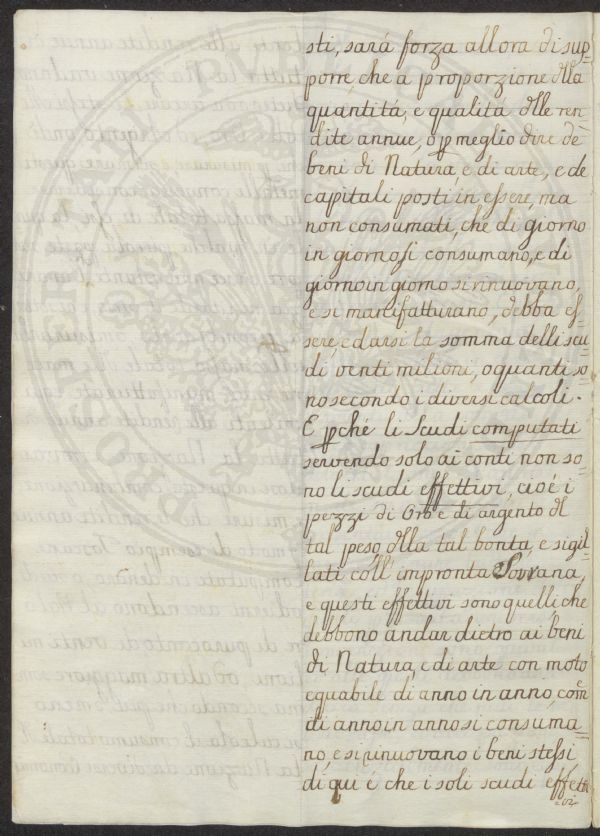 sti, sará forza allora di sup=
porre che a proporzione dlla
quantitá, e qualitá dlle ren=
dite annue, o p meglio dire de
beni di Natura, e di arte, e de
capitali posti in essere, ma
non consumati, che di giorno
in giorno si consumano, e di
giorno in giorno si rinuovano,
e si manifatturano, debba es=
sere, e darsi la somma delli scu=
di venti milioni, o quanti so=
no secondo i diversi calcoli.
E pché li Scudi computati
servendo solo ai conti non so=
no li scudi effettivi, cioé i
pezzi di Oro e di argento dl
tal peso dlla tal bontá, e sigil=
lati coll'impronta Sovrana,
e questi effettivi sono quelli che
debbono andar dietro ai beni
di Natura, e di arte con moto
equabile di anno in anno, come
di anno in anno si consuma=
no, e si rinuovano i beni stessi
di qui é che i soli scudi effetti=